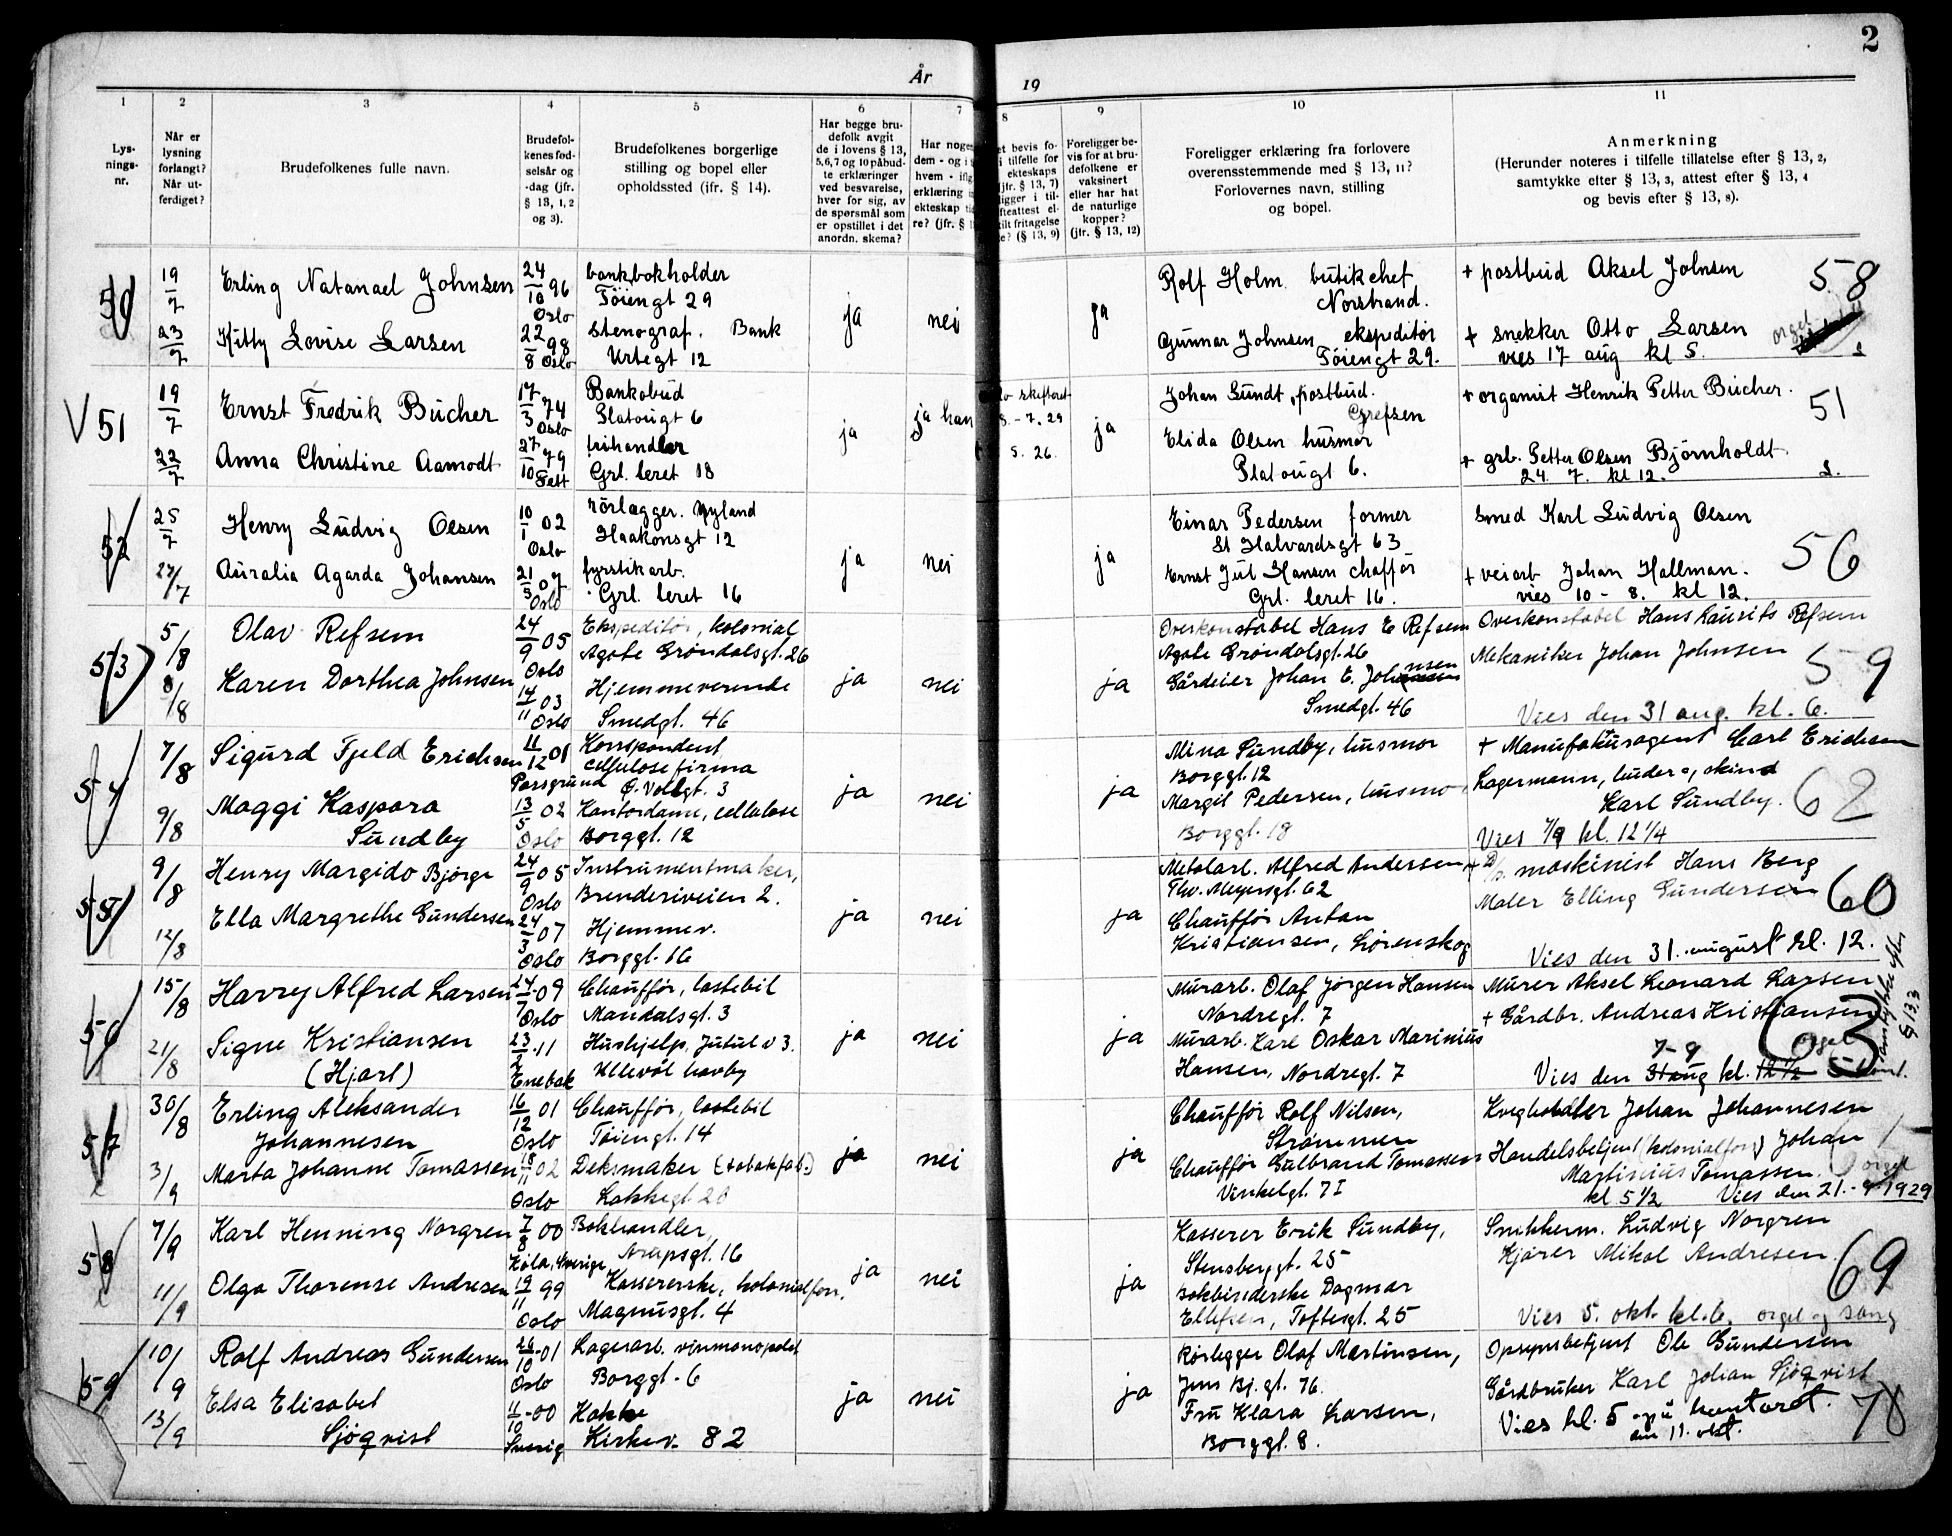 2
År 19
1 2 3 4 5 6 7 8 9 10 11
Lys-
nings-
nr.
Når er
lysning
forlangt?
Når ut-
ferdiget?
Brudefolkenes fulle navn.
Brudefol-
kenes fød-
selsår og
-dag (jfr.
§ 13, 1, 2
og 3).
Brudefolkenes borgerlige
stilling og bopel eller
opholdssted (ifr. § 14).
Har begge bru-
defolk avgit
de i lovens § 13,
5, 6, 7 og 10 påbud-
te erklæringer
ved besvarelse,
hver for sig, av
de spørsmål som
er opstillet i det
anordn. skema?
Har noge
dem - og i
hvem - ifl
erklæring
ekteskap ti
re? (jfr. §
et bevis fo-
i tilfelle for
ekteskaps
(jfr. § 13, 7)
ligger i til-
fteattest el-
tilt fritagelse
e? (§ 13, 9)
Foreligger be-
vis for at bru-
defolkene er
vaksinert
eller har hat
de naturlige
kopper?
(jfr. § 13, 12)
Foreligger erklæring fra forlovere
overensstemmende med § 13, 11?
Forlovernes navn, stilling
og bopel.
Anmerkning
(Herunder noteres i tilfelle tillatelse efter § 13, 2,
samtykke efter § 13, 3, attest efter § 13, 4
og bevis efter § 13, 8).
50
19/7
23/7
Erling Natanael Johnsen
24/10 96
Oslo
bankbokholder
Töiengt 29
Kitty Lovise Larsen
22/8 98
Oslo
stenograf. Bank
Urtegt 12
ja nei ja
Rolf Holm butikchef
Norstrand.
Gunnar Johnsen ekspeditör
Töiengt 29.
+ postbud Aksel Johnsen
+ snekker Otto Larsen
vies 17 aug kl 5.
orgel
58
S
V 51
19/7
22/7
Ernst Fredrik Bucher
17/3 74
Oslo
Bankobud
Platougt 6
Anna Christine Aamodt
27/10 79
Fett
Grl. leret 18
ja ja han
skifteret
8. - 7. 29
S. 26.
ja
Johan Lundt, postbud.
Grefsen
Elida Olsen husmor
Platougt 6.
+ organist Henrik Petter Bucher.
+ grb. Petter Olsen Björnholdt
24. 7. kl 12.
51
S.
52
25/7
27/7
Henry Ludvig Olsen
10/1 02
Oslo
rörlægger. Nyland
Haakonsgt 12
Auralia Agarda Johansen
21/3 07
Oslo
fyrstikarb.
Grl. leret 16
ja nei ja
Einar Pedersen former
St Halvardsgt 63
Ernst Jul Hansen chafför
Grl. leret 16.
Smed Karl Ludvig Olsen
+ veiarb Johan Hallman.
vies 10 - 8. kl 12.
56
53
5/8
8/8
Olav Refsem
24/9 05
Oslo
Ekspeditör, kolonial
Agate Gröndalsgt. 26
Karen Dorthea Johnsen
14/11 03
Oslo
Hjemmeværende
Smedgt. 46
ja nei ja
Overkonstabel Hans E Refsem
Agate Gröndalsgt. 26
Gårdeier Johan E. Johnsen
Smedgt. 46
Overkonstabel Hans Laurits Refsem
Mekaniker Johan Johnsen
Vies den 31 aug. kl. 6.
59
54
7/8
9/8
Sigurd Fjeld Erichsen
11/12 01
Porsgrund
Korrspondent
cellulosefirma
Ø. Vollgt. 3
Maggi Kaspara
Sundby
13/5 02
Oslo
Kontordame, cellulose
Borggt. 12
ja nei ja
Mina Sundby, husmor
Borggt. 12
Margit Pedersen, husmo
Borggt. 18
+ Manufakturagent Carl Erichsen
Lagermann, huder o, skind
Karl Sundby.
Vies 7/9 kl. 12 1/4
62
55
9/8
12/8
Henry Margido Bjørge
24/9 05
Oslo
Instrumentmaker,
Brenderiveien 2.
Ella Margrethe Gundersen
24/3 07
Oslo
Hjemmev.
Borggt. 16
ja nei ja
Metalarb. Alfred Andersen
Thv. Meyersgt. 62
Chauffør Anton
Kristiansen, Lørenskog
+ maskinist Hans Berg
Maler Elling Gundersen
Vies den 31. august kl. 12.
60
56
15/8
21/8
Harry Alfred Larsen
24/7 09
Oslo
Chauffør, lastebil
Mandalsgt. 3
Signe Kristiansen
(Hjarl)
23/2 11
Enebak
Hushjelp, Jutul v 3.
Ullevål havby
ja nei ja
Murarb. Olaf Jørgen Hansen
Nordregt. 7
Murarb. Karl Oskar Marinius
Hansen, Nordregt. 7
Murer Aksel Leonard Larsen
+ Gårdbr. Andreas Kristiansen
7 - 9
Vies den 31 aug kl. 12 1/2
orgel
63
Samtykke efter
§ 13 3
57
30/8
3/9
Erling Aleksander
Johannesen
16/12 01
Oslo
Chauffør, lastebil
Tøiengt. 14
Marta Johanne Tomassen
18/11 02
Oslo
Deksmaker (tobakfab.)
Lakkegt. 20
ja nei ja
Chauffør Rolf Nilsen,
Strømmen
Chauffør Gulbrand Tomassen
Vinkelgt. 7 I
Kveghandler Johan Johannesen
Handelsbetjent (kolonialforr) Johan
Martinius Tomassen.
kl 5 1/2 Vies den 21. - 9. 1929
orgel
58
7/9
11/9
Karl Henning Norgren
7/8 00
Köla, Sverige
Bokhandler,
Arupsgt. 16
Olga Thorense Andresen
19/11 99
Oslo
Kassererske, kolonialforr.
Magnusgt. 4
ja nei ja
Kasserer Erik Sundby,
Stensberggt. 25
Bokbinderske Dagmar
Ellefsen, Toftesgt. 25
Snikkerm. Ludvig Norgren
Kjører Mikal Andresen.
Vies 5. okt. kl. 6. orgel og sang
69
59
10/9
13/9
Rolf Andreas Gundersen
26/10 01
Oslo
Lagerarb. vinmonopolet
Borggt. 6
Elsa Elisabet
Sjöqvist
11/10 - 00
Sverig
Kokke
Kirkev. 82
ja nei ja
Rørlegger Olaf Martinsen,
Jens Bj. gt. 76.
Fru Klara Larsen,
Borggt. 8.
Opsynsbetjent Ole Gundersen
Gårdbruker Karl Johan Sjöqvist
Vies kl. 5 på kontoret.
den 11. okt.
78